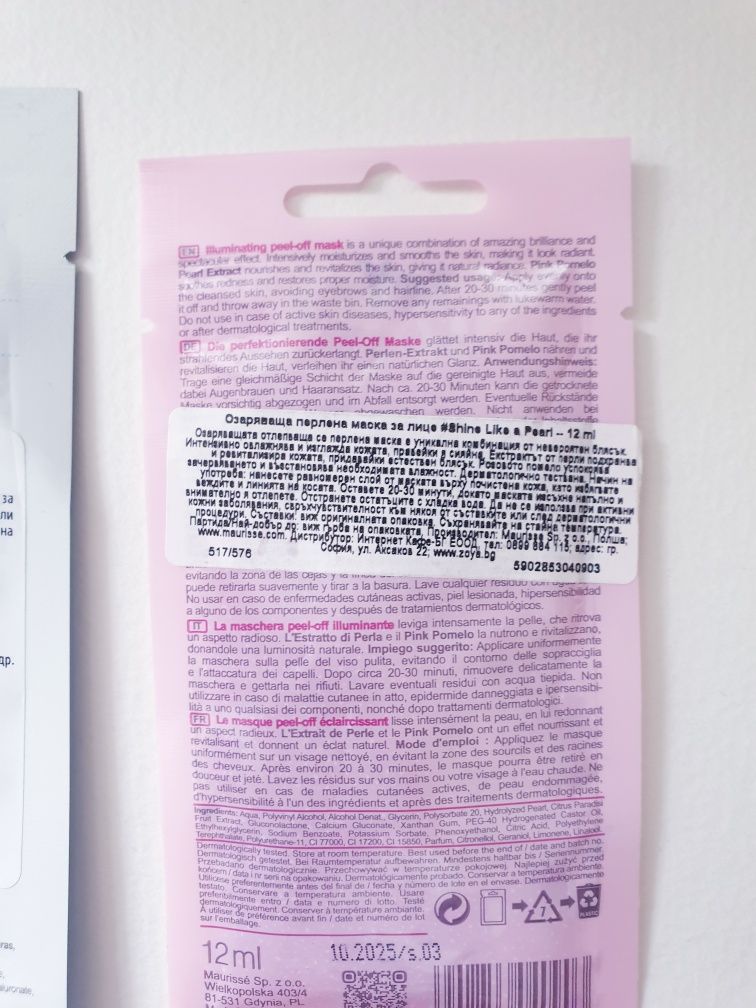 EN Illuminating peel-off mask is a unique combination of amazing brilliance and
spectacular effect. Intensively moisturizes and smooths the skin, making it look radiant.
Pearl Extract nourishes and revitalizes the skin, giving it natural radiance. Pink Pomelo
soothes redness and restores proper moisture. Suggested usage: Apply evenly onto
the cleansed skin, avoiding eyebrows and hairline. After 20-30 minutes gently peel
it off and throw away in the waste bin. Remove any remainings with lukewarm water.
Do not use in case of active skin diseases, hypersensitivity to any of the ingredients
or after dermatological treatments.
DE Die perfektionierende Peel-Off Maske glättet intensiv die Haut, die ihr
strahlendes Aussehen zurückerlangt. Perlen-Extrakt und Pink Pomelo nähren und
revitalisieren die Haut, verleihen ihr einen natürlichen Glanz. Anwendungshinweis:
Trage eine gleichmäßige Schicht der Maske auf die gereinigte Haut aus, vermeide
dabei Augenbrauen und Haaransatz. Nach ca. 20-30 Minuten kann die getrocknete
Maske vorsichtig abgezogen und im Abfall entsorgt werden. Eventuelle Rückstände
abgewaschen werden. Nicht anwenden bei
Озаряваща перлена маска за лице #Shine Like a Pearl -- 12 ml
Озаряващата отлепваща се перлена маска е уникална комбинация от невероятен блясък.
Интензивно овлажнява и изглажда кожата, правейки я сияйна. Екстрактът от перли подхранва
и ревитализира кожата, придавайки естествен блясък. Розовото помело успокоява
зачервяването и възстановява необходимата влажност. Дерматологично тествана. Начин на
употреба: нанесете равномерен слой от маската върху почистена кожа, като избягвате
веждите и линията на косата. Оставете 20-30 минути, докато маската изсъхне напълно и
внимателно я отлепете. Отстранете остатъците с хладка вода. Да не се използва при активни
кожни заболявания, свръхчувствителност към някоя от съставките или след дерматологични
процедури. Съставки: виж оригиналната опаковка. Съхранявайте на стайна температура.
Партида/Най-добър до: виж гърба на опаковката. Производител: Maurisse Sp. z o.o., Полша;
www.maurisse.com. Дистрибутор: Интернет Кафе-БГ ЕООД, тел: 0899 884 115; адрес: гр.
София, ул. Аксаков 22; www.zoya.bg
517/576 5902853040903
evitando la zona de las cejas y la
puede retirarla suavemente y tirar a la basura. Lave cualquier residuo con
No usar en caso de enfermedades cutáneas activas, piel lesionada, hipersensibilidad
a alguno de los componentes y después de tratamientos dermatológicos.
IT La maschera peel-off illuminante leviga intensamente la pelle, che ritrova
un aspetto radioso. L'Estratto di Perla e il Pink Pomelo la nutrono e rivitalizzano,
donandole una luminosità naturale. Impiego suggerito: Applicare uniformemente
la maschera sulla pelle del viso pulita, evitando il contorno delle sopracciglia
e l'attaccatura dei capelli. Dopo circa 20-30 minuti, rimuovere delicatamente la
maschera e gettarla nei rifiuti. Lavare eventuali residui con acqua tiepida. Non
utilizzare in caso di malattie cutanee in atto, epidermide danneggiata e ipersensibi-
lità a uno qualsiasi dei componenti, nonché dopo trattamenti dermatologici.
FR Le masque peel-off éclaircissant lisse intensément la peau, en lui redonnant
un aspect radieux. L'Extrait de Perle et le Pink Pomelo ont un effet nourrissant et
revitalisant et donnent un éclat naturel. Mode d'emploi : Appliquez le masque
uniformément sur un visage nettoyé, en évitant la zone des sourcils et des racines
des cheveux. Après environ 20 à 30 minutes, le masque pourra être retiré en
douceur et jeté. Lavez les résidus sur vos mains ou votre visage à l'eau chaude. Ne
pas utiliser en cas de maladies cutanées actives, de peau endommagée,
d'hypersensibilité à l'un des ingrédients et après des traitements dermatologiques.
Ingredients: Aqua, Polyvinyl Alcohol, Alcohol Denat., Glycerin, Polysorbate 20, Hydrolyzed Pearl, Citrus Paradisi
Fruit Extract, Gluconolactone, Calcium Gluconate, Xanthan Gum, PEG-40 Hydrogenated Castor Oil,
Ethylhexylglycerin, Sodium Benzoate, Potassium Sorbate, Phenoxyethanol, Citric Acid, Polyethylene
Terephthalate, Polyurethane-11, CI 77000, CI 17200, CI 15850, Parfum, Citronellol, Geraniol, Limonene, Linalool.
Dermatologically tested. Store at room temperature. Best used before the end of / date and batch no.
Dermatologisch getestet. Bei Raumtemperatur aufbewahren. Mindestens haltbar bis / Seriennummer.
Przebadano dermatologicznie. Przechowywać w temperaturze pokojowej. Najlepiej zużyć przed
końcem / data i nr serii na opakowaniu. Dermatológicamente probado. Conservar a temperatura ambiente.
Utilícese preferentemente antes del final de / fecha y número de lote en el envase. Dermatologicamente
testato. Conservare a temperatura ambiente. Usare
preferibilmente entro / data e numero di lotto. Testé
dermatologiquement. Conserver à température ambiante.
À utiliser de préférence avant fin / date et numéro de lot
sur l'emballage.
7
PLASTIC
12ml
10.2025/s.03
Maurissé Sp. z o.o.
Wielkopolska 403/4
81-531 Gdynia, PL
за
ли
на
др.
ras,